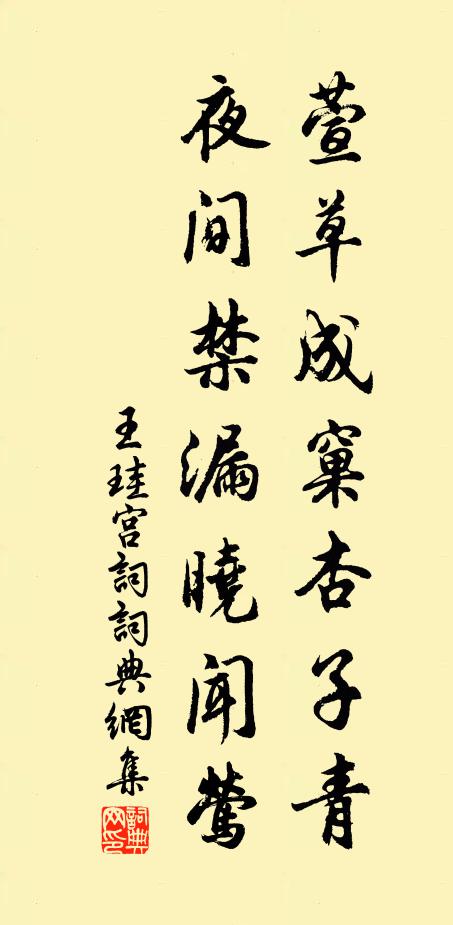 萱草成窠杏子青
夜间禁漏曉闻鶯
王珪宫詞詞典網集
詞典网印